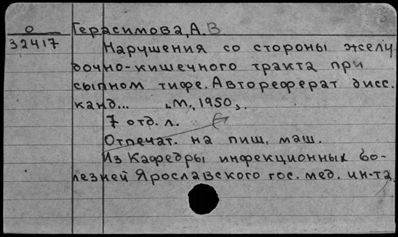 О Герасимова, А.В
32417 Нарушения со стороны желу
дочно-кишечного тракта при
сыпном тифе. Автореферат дисс.
канд... М., 1950.
7 отд. л.
Отпечат. на пиш. маш.
Из Кафедры инфекционных бо-
лезней Ярославского гос. мед. ин-та